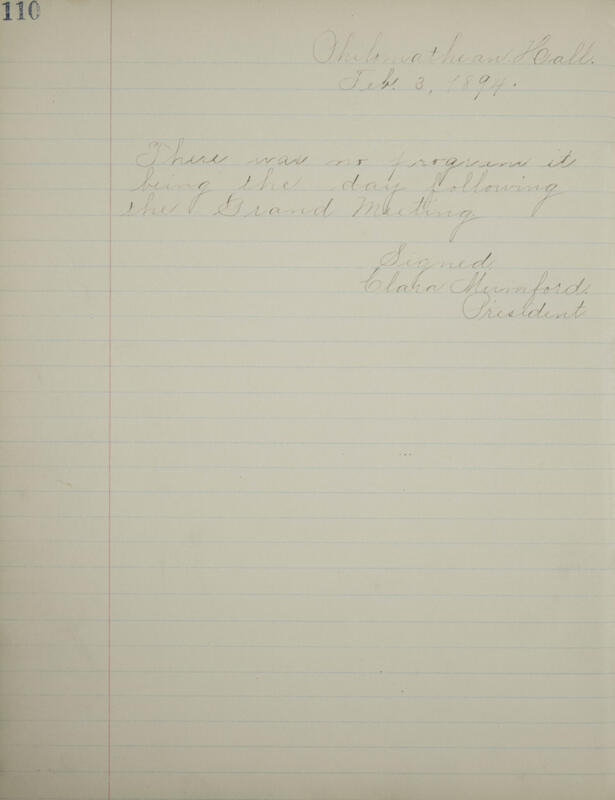 110
Philomathean Hall.
Feb. 3, 1894.
There was no program it
being the day following
the Grand Meeting
Signed
Clara Mumford.
President